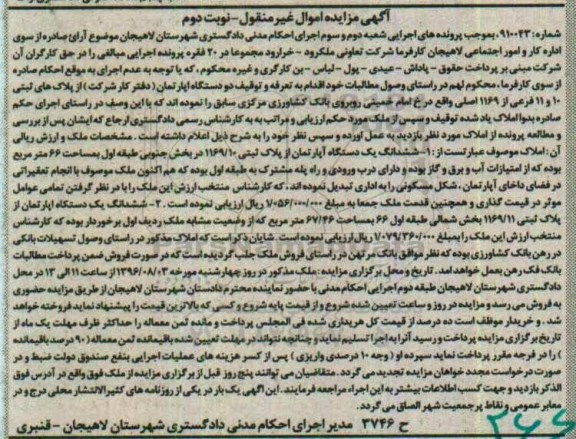 آگهی مزایده اموال غیر منقول - نوبت دوم
شماره: ۹۱۰۰۴۳، بموجب پرونده های اجرایی شعبه دوم و سوم اجرای احکام مدنی دادگستری شهرستان لاهیجان موضوع آرای صادره از سوی
اداره کار و امور اجتماعی لاهیجان کارفرما شرکت تعاونی ملکرود - خرارود مجموعا در ۲۰ فقره پرونده اجرایی مبالغی را در حق کارگران آن
شرکت مبنی بر پرداخت حقوق - پاداش - عیدی - پول - لباس - بن کارگری و غیره محکوم، که با توجه به عدم اجرای به موقع احکام صادره
از سوی کارفرما، محکوم لهم در راستای وصول مطالبات خود اقدام به تعرفه و توقیف دو دستگاه آپارتمان (دفتر کار شرکت) از پلاک های ثبتی
۱۰ و ۱۱ فرعی از ۱۱۶۹ اصلی واقع در خ امام خمینی روبروی بانک کشاورزی مرکزی سابق را نموده اند که با این وصف در راستای اجرای حکم
صادره بدوا املاک یاد شده توقیف و سپس از ملک مورد حکم ارزیابی و مراتب به به کارشناس رسمی دادگستری ارجاع که ایشان پس از بررسی
و مطالعه پرونده از املاک مورد نظر بازدید به عمل آورده و سپس نظر خود را به شرح ذیل اعلام داشته است. مشخصات ملک و ارزش ریالی
آن: املاک موصوف عبارتست از: ۱- ششدانگ یک دستگاه آپارتمان از پلاک ثبتی ۱۱۶۹/۱۰ در بخش جنوبی طبقه اول بمساحت ۶۶ متر مربع
بوده که از امتیازات آب و برق و گاز بوده و دارای درب ورودی و راه پله مشترک به طبقه اول بوده که هم اکنون ملک موصوف با انجام تغییراتی
در فضای داخلی آپارتمان، شکل مسکونی را به اداری تبدیل نموده اند، که کارشناس منتخب ارزش این ملک را با در نظر گرفتن تمامی عوامل
موثر در قیمت گذاری و همچنین قدمت ملک جمعا به مبلغ ۷/۰۵۶/۰۰۰/۰۰۰ ریال ارزیابی نموده است. ۲- ششدانگ یک دستگاه آپارتمان از
پلاک ثبتی ۱۱۶۹/۱۱ بخش شمالی طبقه اول ۶۶ بمساحت ۶۷/۴۶ متر مربع که از وضعیت مشابه ملک ردیف اول برخوردار بوده که کارشناس
منتخب ارزش این ملک را بمبلغ ۷/۰۷۹/۳۶۰/۰۰۰ ریال ارزیابی نموده است. شایان ذکر است که املاک مذکور در راستای وصول تسهیلات بانکی
در رهن بانک کشاورزی بوده که نظر موافق بانک مرتهن در راستای فروش ملک جلب گردیده است که در صورت فروش ضمن پرداخت مطالبات
بانک فک رهن بعمل خواهد آمد. تاریخ و محل برگزاری مزایده: ملک مذکور در روز چهارشنبه مورخه ۱۳۹۶/۰۸/۰۳ از ساعت ۱۱ الی ۱۳ در محل
دادگستری شهرستان لاهیجان طبقه دوم اجرایی احکام مدنی با حضور نماینده محترم دادستان شهرستان لاهیجان از طریق مزایده حضوری
به فروش می رسد و مزایده در روز و ساعت تعیین شده شروع و از قیمت پایه شروع و کسی که بالاترین قیمت را پیشنهاد نماید فروخته خواهد
شد. و خریدار موظف است ده درصد از قیمت کل خریداری شده فی المجلس پرداخت و مانده ثمن معامله را حداکثر ظرف مهلت یک ماه از
تاریخ برگزاری مزایده پرداخت و رسید آنرا به اجرا تسلیم نماید و چنانچه نتواند در مهلت تعیین شده باقیمانده ثمن معامله (۹۰ درصد باقیمانده
) را در فرجه مقرر پرداخت نماید سپرده او (وجه ۱۰ درصدی واریزی) پس از کسر هزینه های عملیات اجرایی بنفع صندوق دولت ضبط و در
صورت درخواست مجدد خواهان مزایده تجدید می گردد. متقاضیان می توانند پنج روز قبل از برگزاری مزایده از ملک فوق واقع در آدرس فوق
الذکر بازدید و جهت کسب اطلاعات بیشتر به این اجراء مراجعه فرمایند. این آگهی یک بار در یکی از روزنامه های کثیرالانتشار محلی درج و در
معابر عمومی و نقاط پر جمعیت شهر الصاق می گردد.
ح ۳۷۴۶ مدیر اجرای احکام مدنی دادگستری شهرستان لاهیجان - قنبری